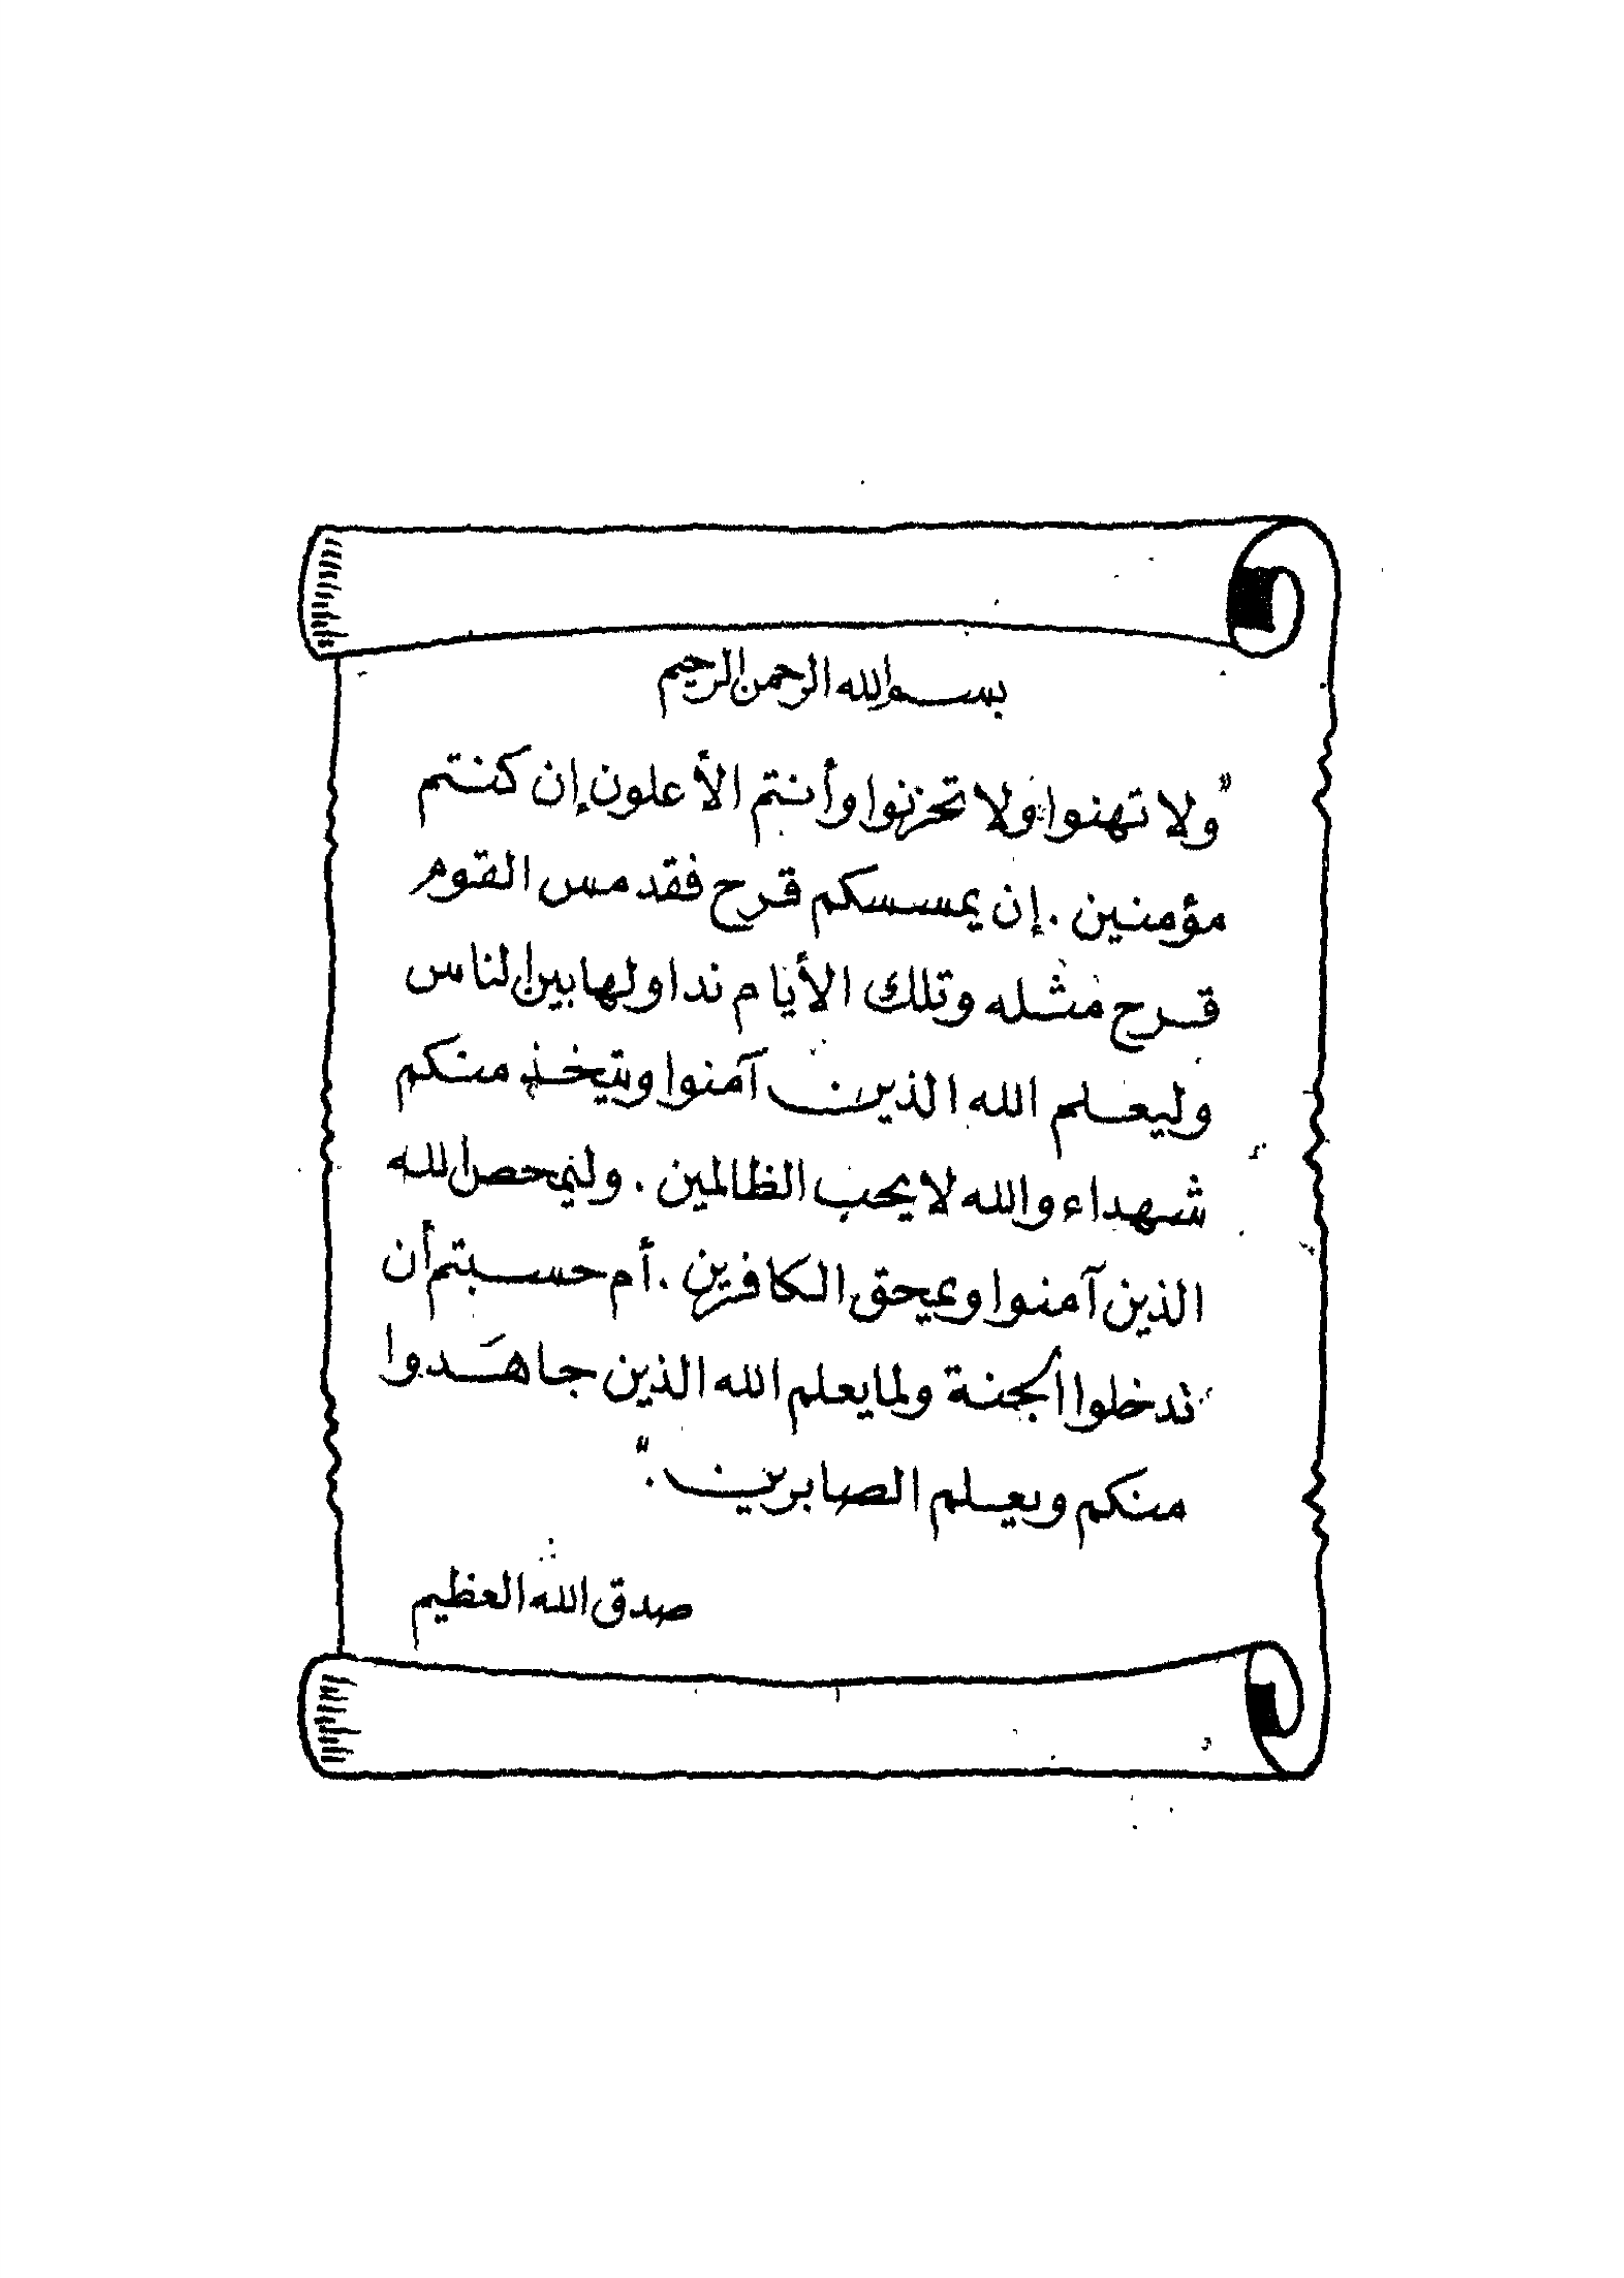 بسم الله الرحمن الرحيم
"ولا تهنوا ولا تحزنوا وأنتم الأعلون إن كنتم
مؤمنين . إن يمسسكم قرح فقد مس القوم
قرح مثله وتلك الأيام نداولها بين الناس
وليعلم الله الذين آمنوا ويتخذ منكم
شهداء والله لا يحب الظالمين . وليمحص الله
الذين آمنوا ويمحق الكافرين . أم حسبتم أن
تدخلوا الجنة ولما يعلم الله الذين جاهَدوا
منكم ويعلم الصابرين ."
صدق الله العظيم